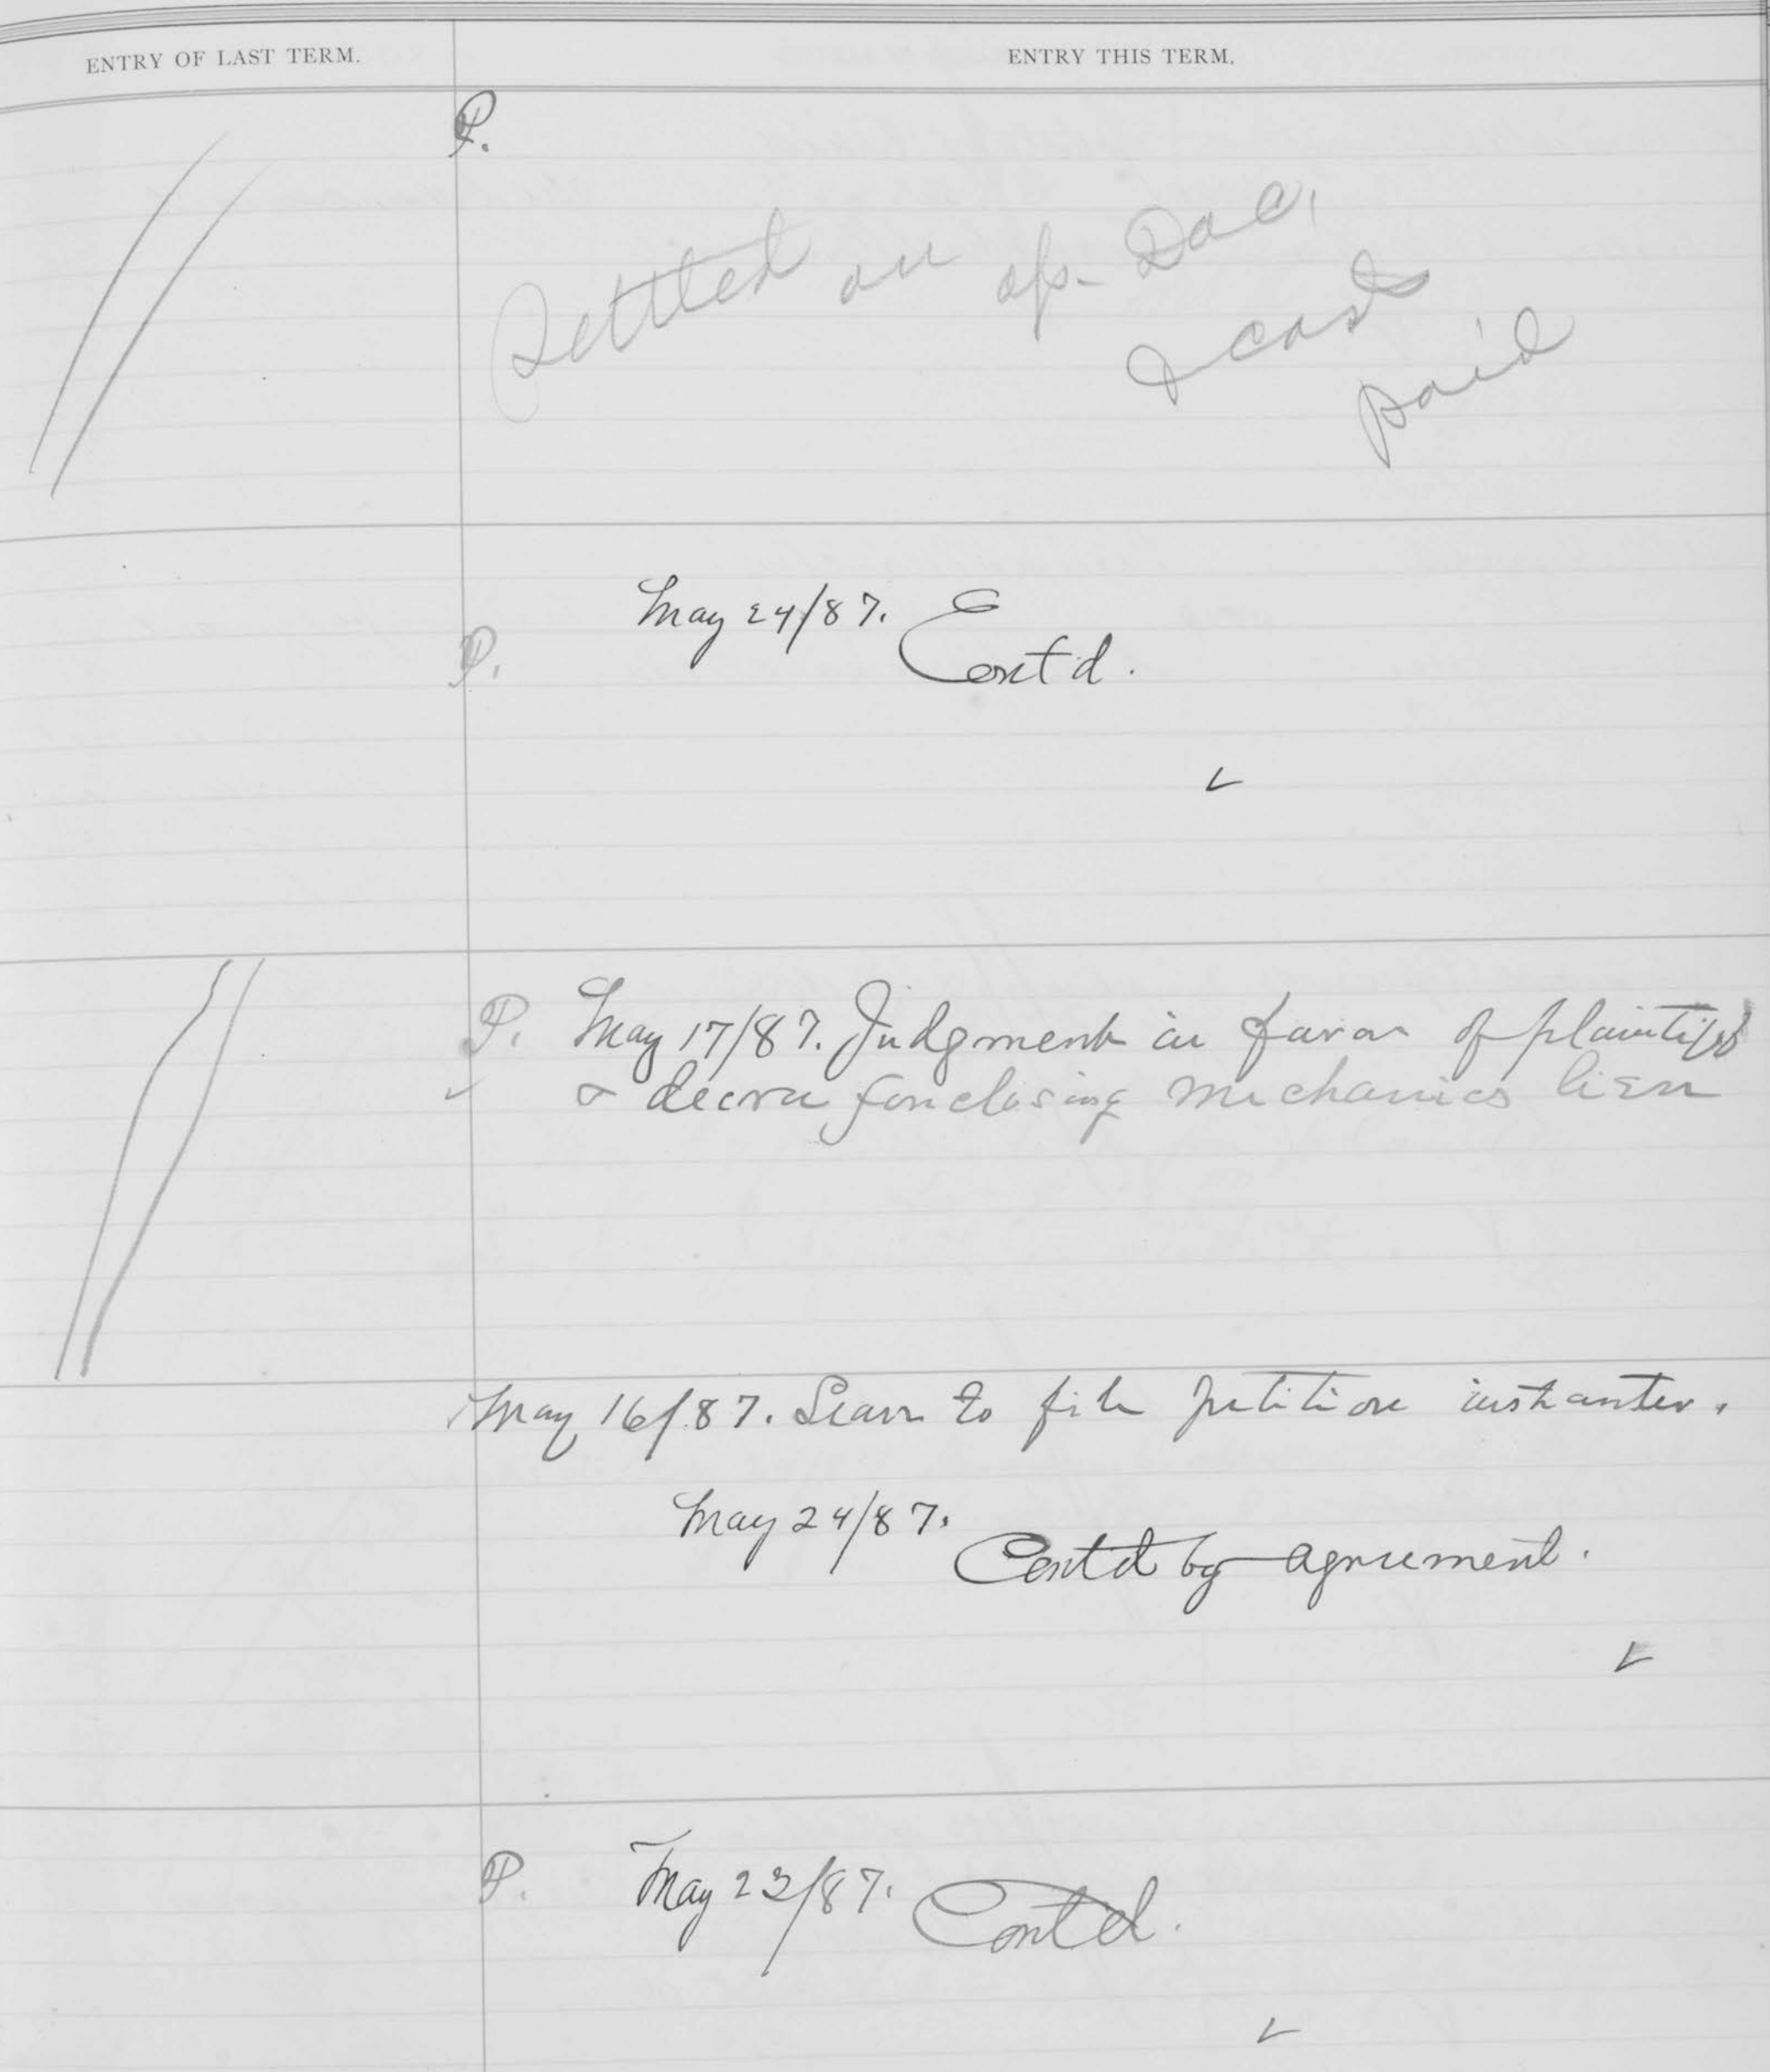 ENTRY OF LAST TERM.
ENTRY THIS TERM.
P.
Settled on ap. Doc.
& cost
paid
May 24/87.
P.
Cont'd.
P. May 17/87. Judgment in favor of plaintiff
& decree foreclosing mechanics lien
May 16/87. Leave to file petition instanter.
May 24/87.
Cont'd by agreement.
P. May 23/87. Cont'd.